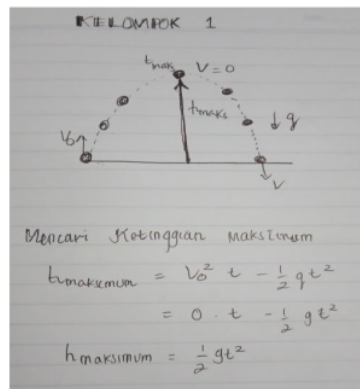 KELOMPOK 1
tmak
V=0
hmaks
↓g
Vo↑
V
Mencari Ketinggian Maksimum
hmaksimum = Vo² t - ½ gt²
= 0 . t - ½ gt²
hmaksimum = ½ gt²